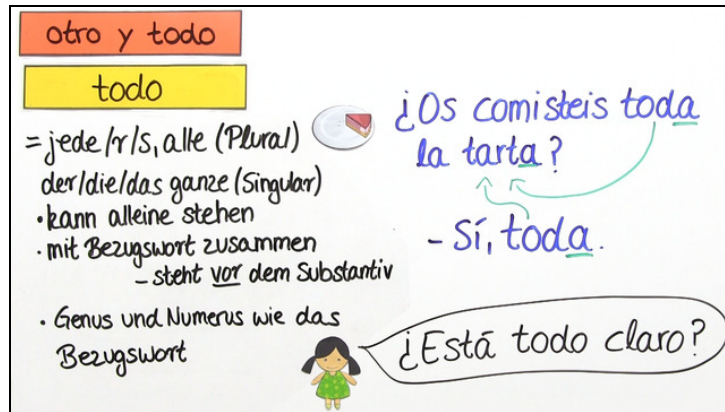 otro y todo
todo
= jede/r/s, alle (Plural)
der/die/das ganze (Singular)
• kann alleine stehen
• mit Bezugswort zusammen
– steht vor dem Substantiv
• Genus und Numerus wie das
Bezugswort
¿Os comisteis toda
la tarta?
- Sí, toda.
¿Está todo claro?